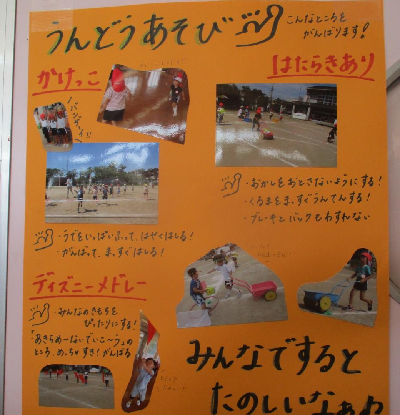 うんどうあそび
こんなところを
がんばります!
かけっこ
・うでをいっぱいふって、はやくはしる!
がんばって、まっすぐはしる!
はたらきあり
・おかしをおとさないようにする!
・くるまをまっすぐうんてんする!
・ブレーキとバックもわすれない
ディズニーメドレー
・みんなのきもちを
ぴったりにする!
「あきらめーないでいこーう」の
ところ、めっちゃすき!がんばる
みんなですると
たのしいなぁ